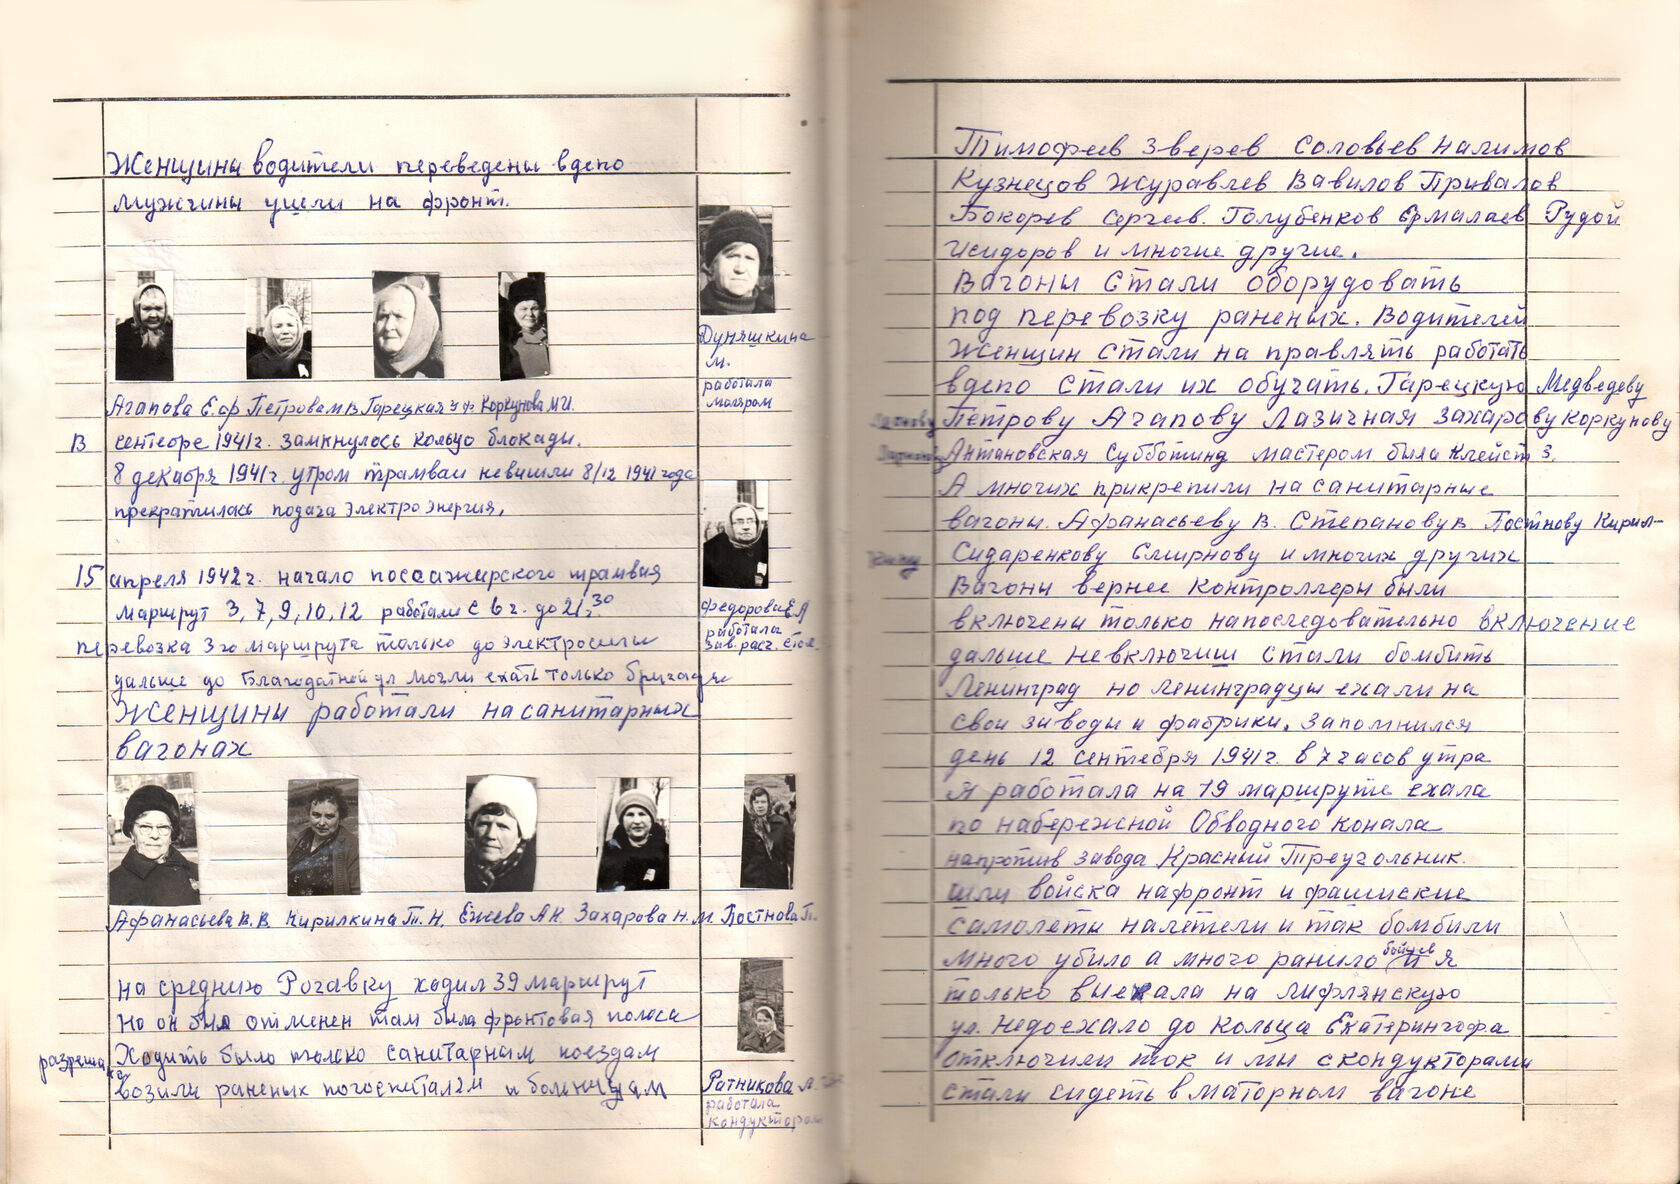 Женщины водители переведены в депо
мужчины ушли на фронт.
Дуняшкина
М.
работала
маляром
Агапова Е.Ф Петрова М В Гарецкая У Ф Коркунова М И.
В сентебре 1941 г. замкнулось кольцо блокады.
8 декабря 1941 г. утром трамваи невишли 8/12 1941 года
прекратилась подача электроэнергия.
15 апреля 1942 г. начало поссажирского трамвая
маршрут 3, 7, 9, 10, 12 работали с 6 ч. до 21 ч. 30
перевозка 3го маршрута только до электросилы
дальше до Благодатной ул могли ехать только бригады
Федорова Е А
работала
зав. расч. стол.
Женщины работали на санитарных
вагонах
Афанасьева В. В. Кирилкина Т. Н. Ежева А Н. Захарова Н. М. Постнова Т.
на среднию Рогавку ходил 39 маршрут
но он был отменен там была фронтовая полоса
Ходить было только санитарным поездам
возили раненых погоспиталям и больницам
Ратникова А.
работала
кондуктором
Тимофеев Зверев Соловьев Налимов
Кузнецов Журавлев Вавилов Привалов
Бокарев Сргеев. Голубенков Ермалаев Рудой
Исидоров и многие другие.
Вагоны стали оборудовать
под перевозку раненых. Водителей
женщин стали на правлять работать
вдепо стали их обучать. Гарецкую Медведеву
Петрову Агапову Лазичная Захарову Коркунову
Антановская Субботину мастером была Клейст З.
А многих прикрепили на санитарные
вагоны. Афанасьеву В. Степанову В. Постнову Кирил-
Сидаренкову Смирнову и многих других
Вагоны вернее контроллеры были
включены только напоследовательно включение
дальше невключиш стали бомбить
Ленинград но Ленинградцы ехали на
свои заводы и фабрики. Запомнился
день 12 сентебря 1941 г. в 7 часов утра
я работала на 19 маршруте ехала
по набережной Обводного конала
напротив завода Красный Треугольник.
шли войска нафронт и фашиские
самолеты налетели и так бомбили
много убило а много ранило бойцов и я
только выехала на Лифлянскую
ул. недоехало до кольца Екатерингофа
отключили ток и мы с кондукторами
стали сидеть в маторном вагоне